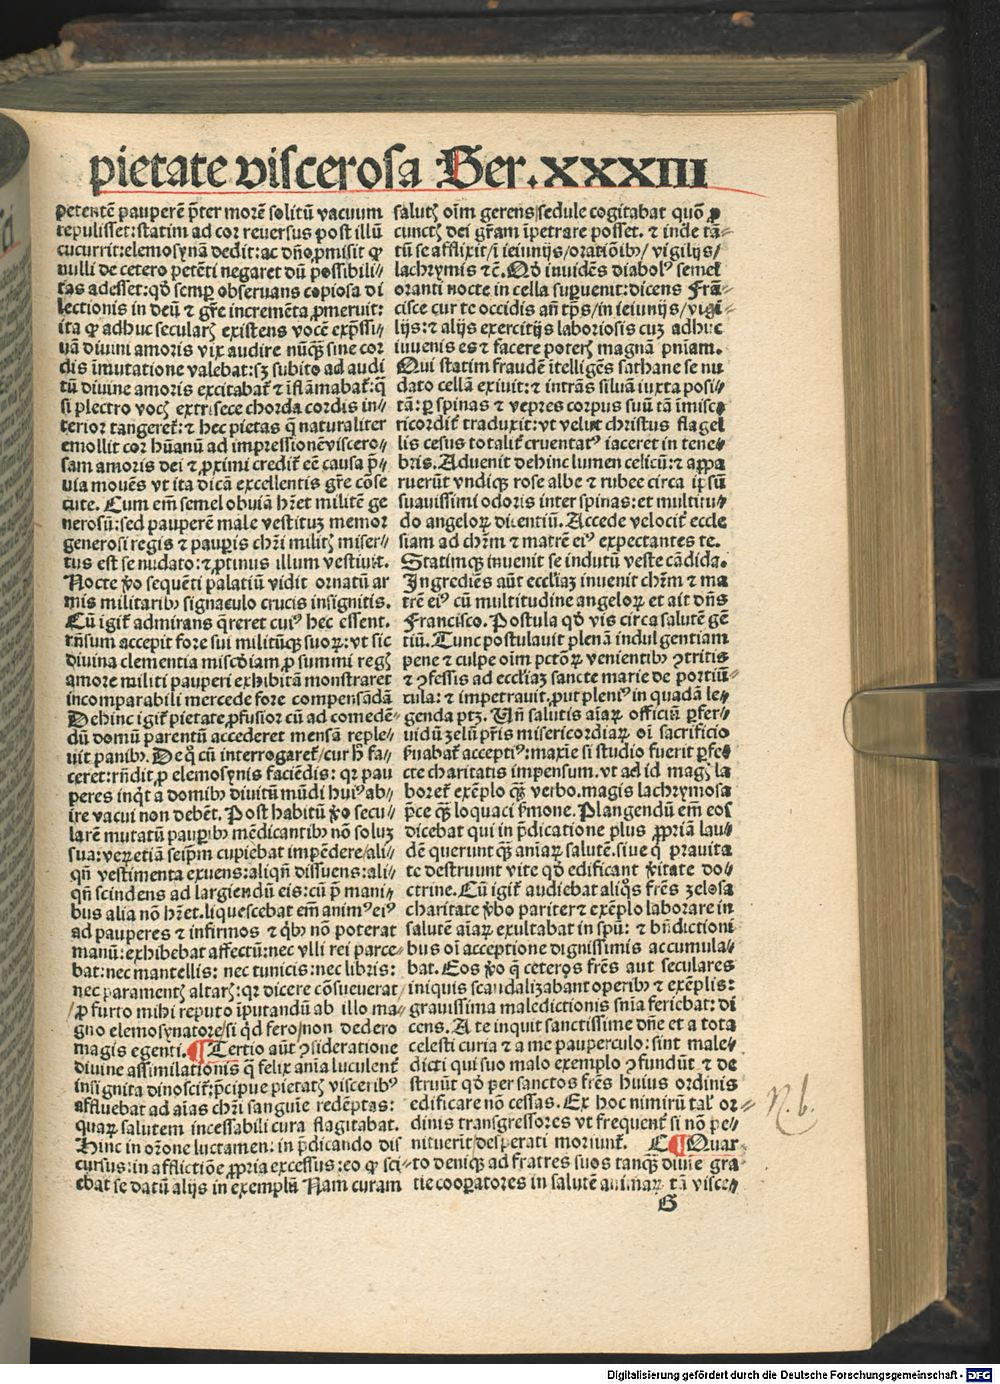 pietate viscerosa Ser. XXXIII
petentē pauperē p̄ter morē solitū vacuum
repulisset: statim ad cor reuersus post illū
cucurrit: elemosynā dedit: ac dn̄o ꝓmisit ꝙ
nulli de cetero petēti negaret dū possibili⸗
tas adesset: qd̓ semꝑ obseruans copiosa di
lectionis in deū ⁊ gr̄e incremēta ꝓmeruit:
ita ꝙ adhuc secularꝭ existens vocē exp̄ssi⸗
uā diuini amoris vix audire nūqꝫ sine cor
dis īmutatione valebat: sꝫ subito ad audi
tū diuine amoris excitabat᷑ ⁊ īflāmabat᷑: q̄
si plectro vocꝭ extrīsece chorda cordis in⸗
terior tangeret᷑: ⁊ hec pietas q̄ naturaliter
emollit cor hūanū ad impressionē viscero⸗
sam amoris dei ⁊ ꝓximi credit᷑ eē causa p̄⸗
uia mouēs vt ita dicā excellentis gr̄e cōse
cute. Cum em̄ semel obuiā hr̄et militē ge
nerosū: sed pauperē male vestituꝫ memor
generosi regis ⁊ pauꝑis chr̄i militꝭ miser⸗
tus est se nudato: ⁊ ꝓtinus illum vestiuit.
Nocte v̓o sequēti palatiū vidit ornatū ar
mis militaribꝰ signaculo crucis insignitis.
Cū igit᷑ admirans q̄reret cuiꝰ hec essent.
rn̄sum accepit fore sui militūqꝫ suoꝝ: vt sic
diuina clementia misc̄diam ꝓ summi regꝭ
amore militi pauperi exhibitā monstraret
incomparabili mercede fore compensādā
Dehinc igit᷑ pietate ꝓfusior cū ad comedē⸗
dū domū parentū accederet mensā reple⸗
uit panibꝰ. De qͦ cū interrogaret᷑/cur h̓ fa⸗
ceret: rn̄dit ꝓ elemosynis faciēdis: qꝛ pau
peres inqͥt a domibꝰ diuitū mūdi huiꝰ ab⸗
ire vacui non debēt. Post habitū v̓o secu⸗
larē mutatū pauꝑibꝰ mēdicantibꝰ nō soluꝫ
sua: veꝝ etiā seip̄m cupiebat impēdere/ali⸗
qn̄ vestimenta exuens: aliqn̄ dissuens: ali⸗
qn̄ scindens ad largiendū eis: cū p̄ mani⸗
bus alia nō hr̄et. liquescebat em̄ animꝰ eiꝰ
ad pauperes ⁊ infirmos ⁊ qͥbꝰ non poterat
manū: exhibebat affectū: nec vlli rei parce⸗
bat: nec mantellis: nec tunicis: nec libris:
nec paramentꝭ altarꝭ: qꝛ dicere cōsueuerat
/ꝓ furto mihi reputo īputandū ab illo ma⸗
gno elemosynatore/si qͥd fero/non dedero
magis egenti. ¶Tertio aūt ꝯsideratione
diuine assimilationis q̄ felix anīa luculent᷑
insignita dinoscit᷑: p̄cipue pietatꝭ visceribꝰ
affluebat ad aīas chr̄i sanguīe redēptas:
quaꝝ salutem incessabili cura flagitabat.
Hinc in or̄one luctamen: in p̄dicando dis
cursus: in afflictiōe ꝓpria excessus: eo ꝙ sci⸗
ebat se datū alijs in exemplū Nam curam
salutꝭ oīm gerens/sedule cogitabat quō ꝓ
cunctꝭ dei gr̄am īpetrare posset. ⁊ inde tā⸗
tū se afflixit/i ieiunijs/orationibꝰ/vigilijs/
lachrymis ⁊c̄. Qd̓ inuidēs diabolꝰ semel
oranti nocte in cella suꝑuenit: dicens Frā⸗
cisce cur te occidis an̄ tp̄s/in ieiunijs/vigi⸗
lijs: ⁊ alijs exercitijs laboriosis cuꝫ adhuc
iuuenis es ⁊ facere poterꝭ magnā pn̄iam.
Qui statim fraudē ītelligēs sathane se nu
dato cellā exiuit: ⁊ intrās siluā iuxta posi⸗
tā: ꝑ spinas ⁊ vepres corpus suū tā īmise⸗
ricordit᷑ traduxit: vt velut christus flagel
lis cesus totalit᷑ cruentatꝰ iaceret in tene⸗
bris. Aduenit dehinc lumen celicū: ⁊ appa
ruerūt vndiqꝫ rose albe ⁊ rubee circa ip̄sū
suauissimi odoris inter spinas: et multitu⸗
do angeloꝝ dicentiū. Accede velocit᷑ eccle
siam ad chr̄m ⁊ matrē eiꝰ expectantes te.
Statimqꝫ inuenit se indutū veste cādida.
Ingrediēs aūt eccl̓iaꝫ inuenit chr̄m ⁊ ma
trē eiꝰ cū multitudine angeloꝝ et ait dn̄s
Francisco. Postula qd̓ vis circa salutē gē
tiū. Tunc postulauit plenā indulgentiam
pene ⁊ culpe oīm pctōꝝ venientibꝰ ꝯtritis
⁊ ꝯfessis ad eccl̓iaꝫ sancte marie de portiū⸗
cula: ⁊ impetrauit ꝓut pleniꝰ in quadā le⸗
genda ptꝫ. Un̄ salutis aīaꝝ officiū ꝑfer⸗
uidū zelū pr̄is misericordiaꝝ oī sacrificio
ẜuabat᷑ acceptiꝰ: maxīe si studio fuerit ꝑfe
cte charitatis impensum. vt ad id magꝭ la
boret᷑ exēplo qꝫ verbo. magis lachrymosa
p̄ce qꝫ loquaci ẜmone. Plangendū em̄ eos
dicebat qui in p̄dicatione plus ꝓpriā lau⸗
dē querunt qꝫ anīaꝝ salutē. siue qͥ prauita
te destruunt vite qd̓ edificant v̓itate do⸗
ctrine. Cū igit᷑ audiebat aliqͦs fr̄es zelosa
charitate v̓bo pariter ⁊ exēplo laborare in
salutē aīaꝝ exultabat in spū: ⁊ bn̄dictioni
bus oī acceptione dignissimis accumula⸗
bat. Eos v̓o q̄ ceteros fr̄es aut seculares
iniquis scandalizabant operibꝰ ⁊ exēplis:
grauissima maledictionis sn̄ia feriebat: di
cens. A te inquit sanctissime dn̄e et a tota
celesti curia ⁊ a me pauperculo: sint male⸗
dicti qui suo malo exemplo ꝯfundūt ⁊ de
struūt qd̓ per sanctos fr̄es huius ordinis
edificare nō cessas. Ex hoc nimirū tal̓ or⸗
dinis transgressores vt frequent᷑ si nō pe⸗
nituerit/desperati moriunt᷑. C ¶Quar
to deniqꝫ ad fratres suos tanqꝫ diuīe gra
tie cooꝑatores in salutē animaꝝ tā visce⸗
G
N. b.
Digitalisierung gefördert durch die Deutsche Forschungsgemeinschaft - DFG